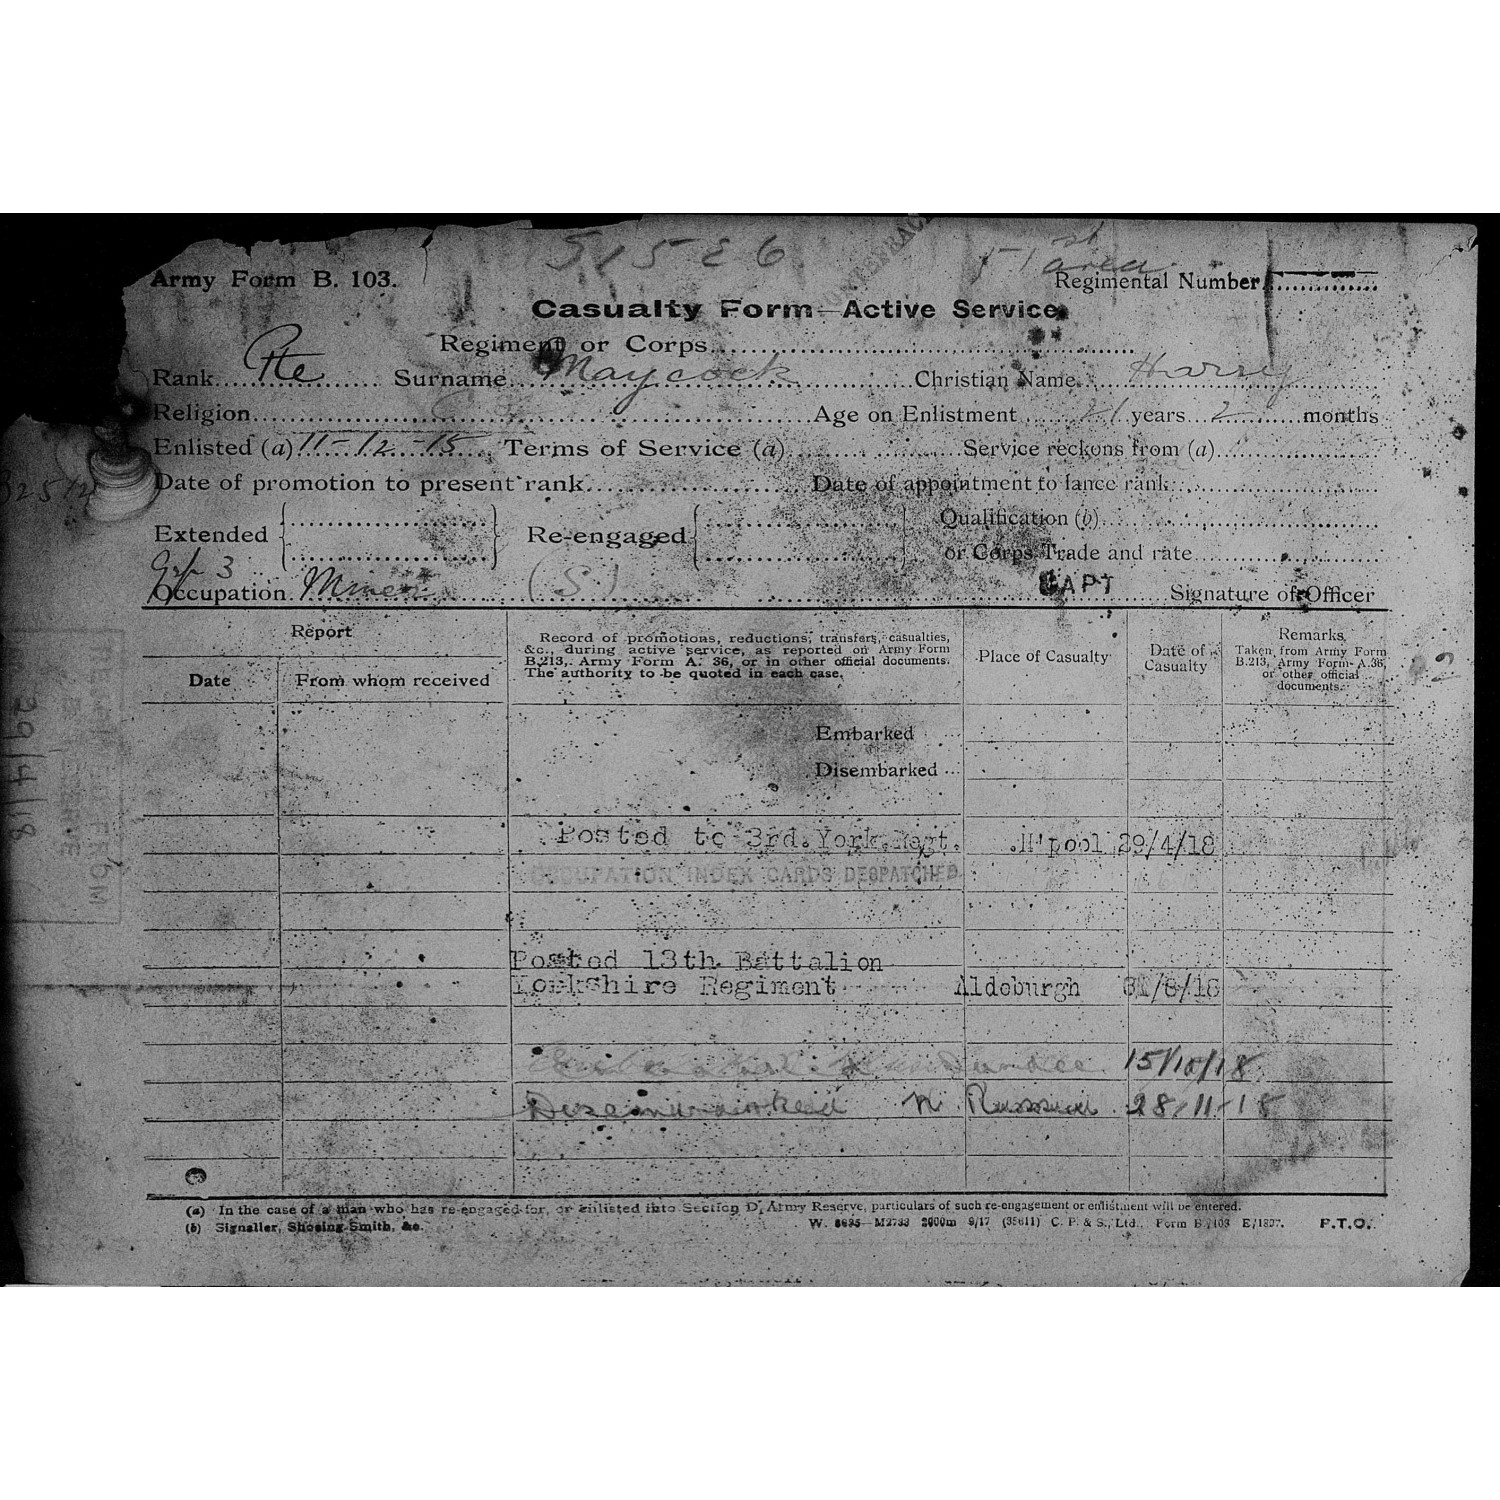 51526
1st area
Army Form B. 103.
Regimental Number
Casualty Form—Active Service.
Regiment or Corps
Rank Pte Surname Maycock Christian Name Harry
Religion C Age on Enlistment 21 years 2 months
Enlisted (a) 11-12-15 Terms of Service (a) Service reckons from (a)
Date of promotion to present rank Date of appointment to lance rank
Extended Re-engaged Qualification (b)
or Corps Trade and rate
Grp 3
Occupation Miner (S) CAPT Signature of Officer
Report
Date
From whom received
Record of promotions, reductions, transfers, casualties,
&c., during active service, as reported on Army Form
B.213, Army Form A. 36, or in other official documents.
The authority to be quoted in each case.
Place of Casualty
Date of
Casualty
Remarks
Taken from Army Form
B.213, Army Form A.36,
or other official
documents.
Embarked
Disembarked
Posted to 3rd. York. Regt. H'pool 29/4/18
OCCUPATION INDEX CARDS DESPATCHED
Posted 13th Battalion
Yorkshire Regiment Aldeburgh
Dundee 15/10/18
Disembarked N. Russia 28-11-18
29/4/18
(a) In the case of a man who has re-engaged for, or enlisted into Section D, Army Reserve, particulars of such re-engagement or enlistment will be entered.
(b) Signaller, Shoeing-Smith, &c.
M2733 2000m 9/17 (35611) C. P. & S., Ltd. Form B./103 P.T.O.